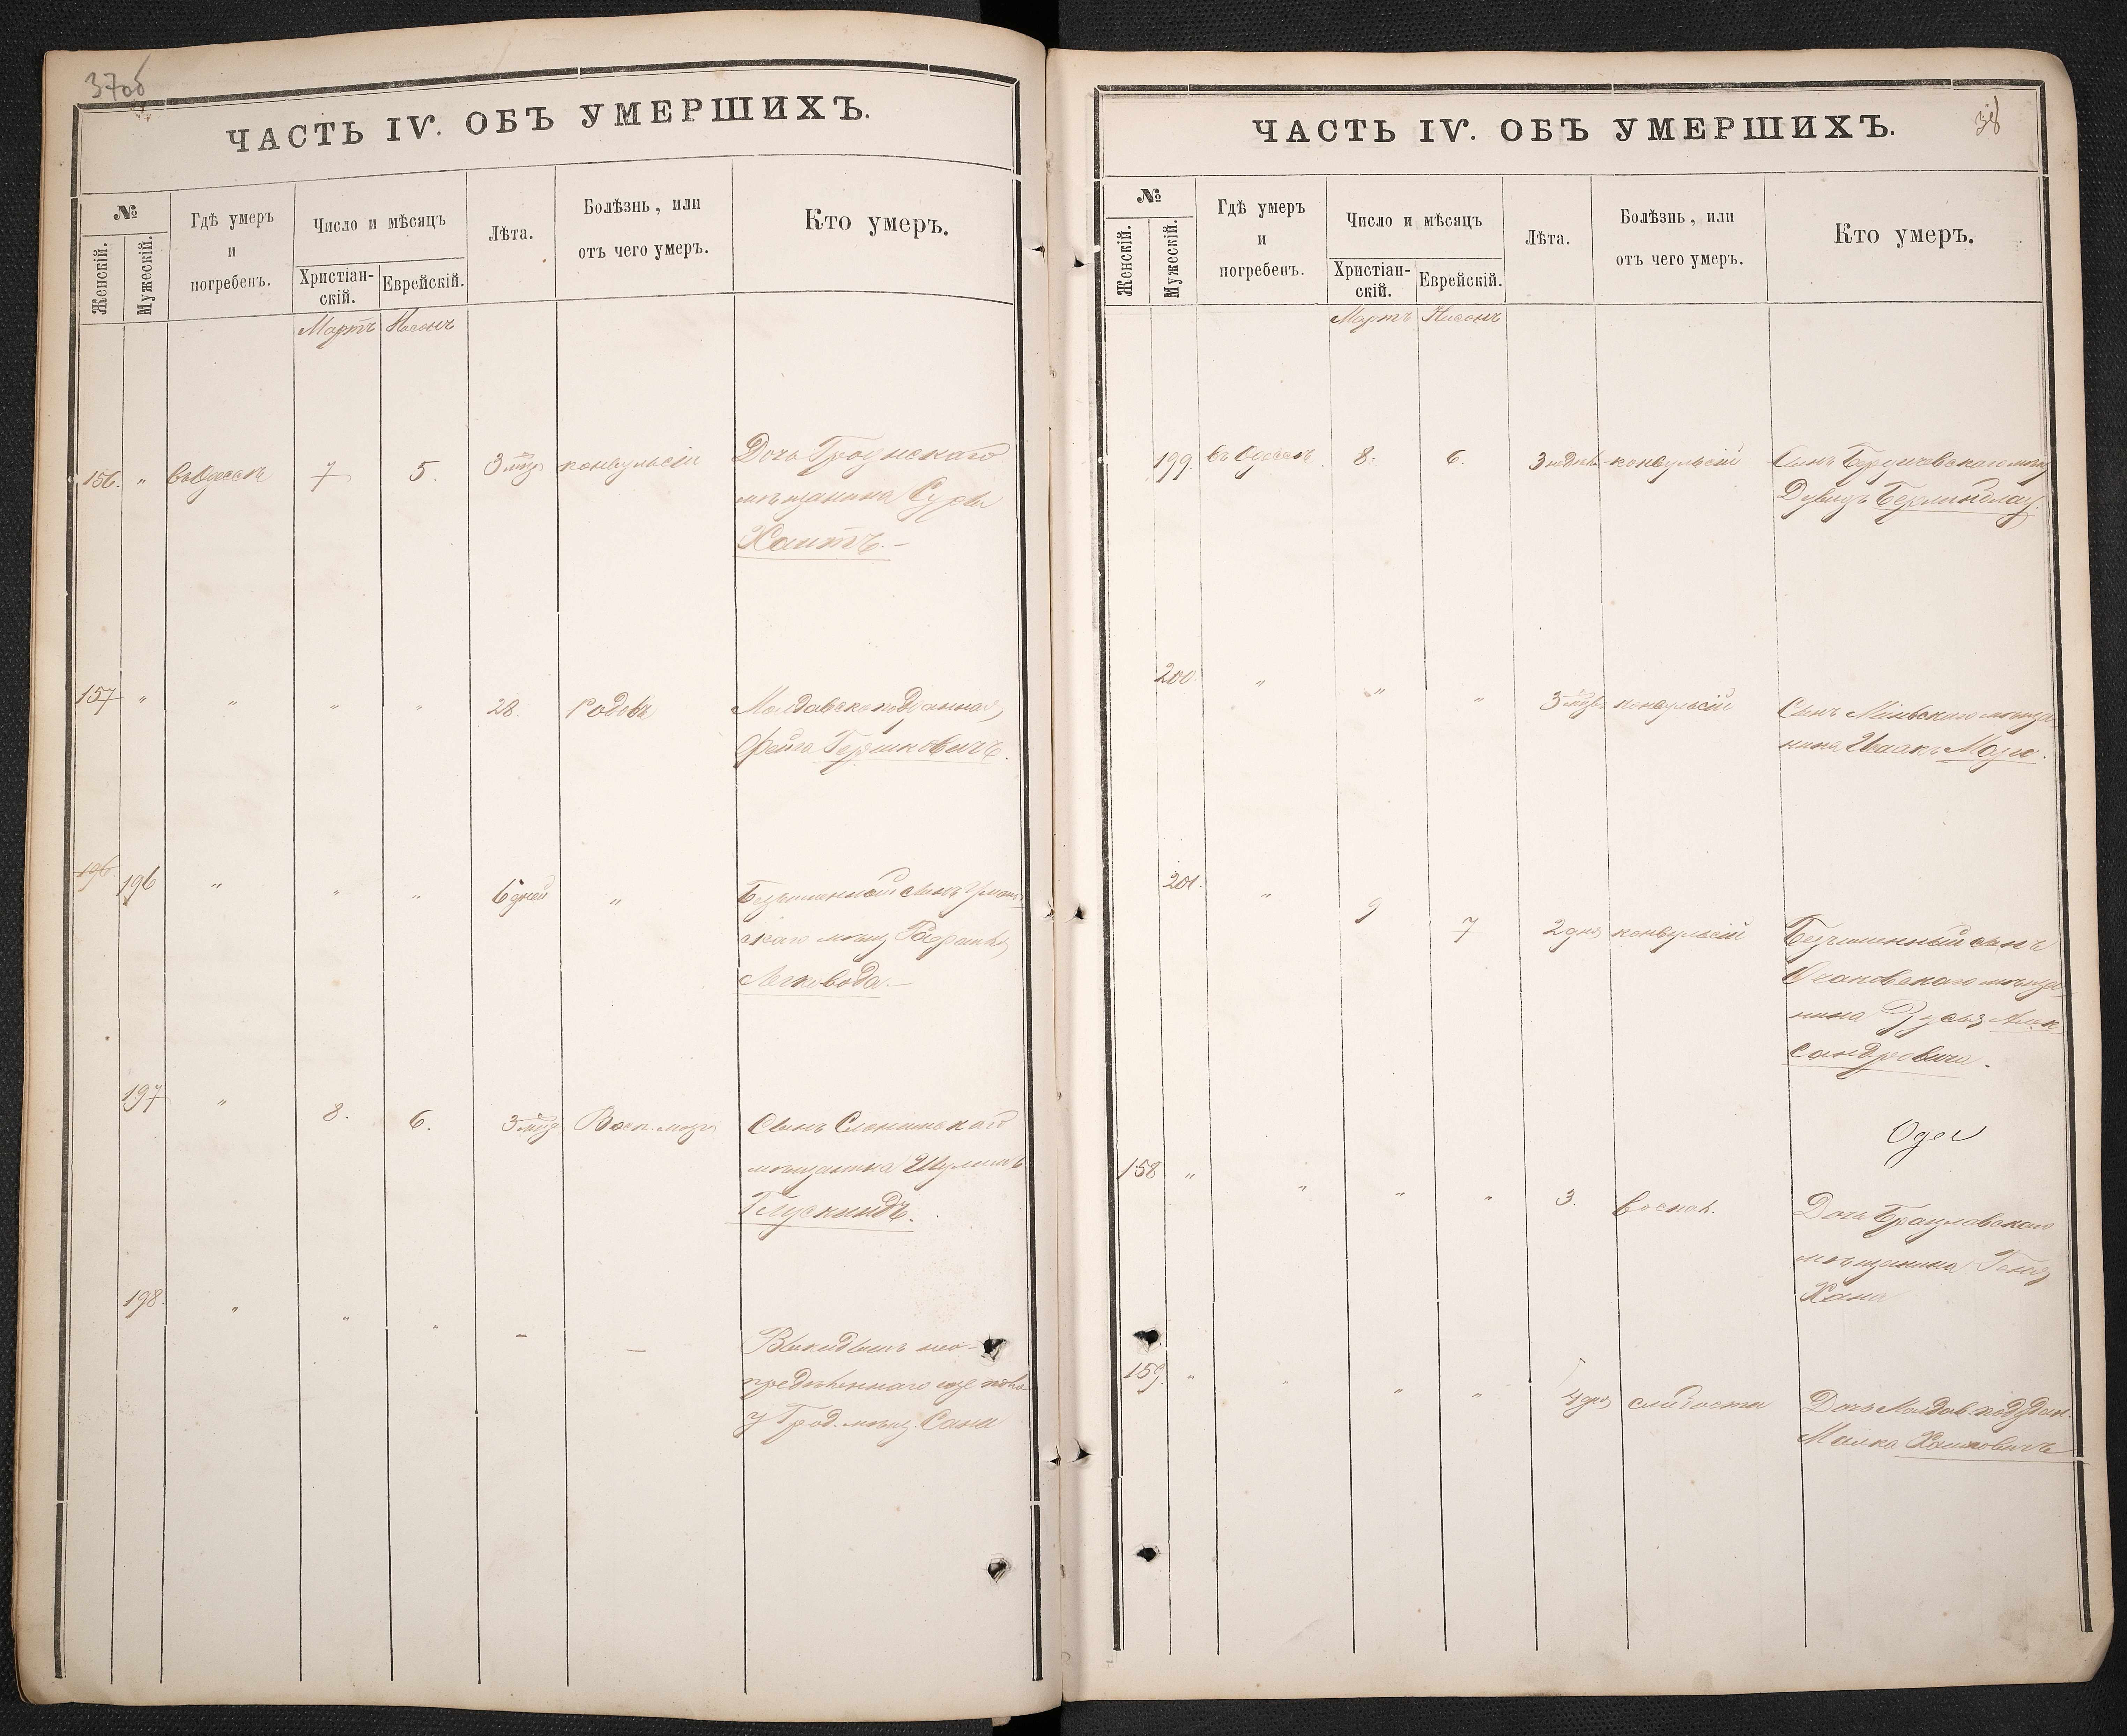 37об
ЧАСТЬ IV. ОБЪ УМЕРШИХЪ.
№
Женскій.
Мужескій.
Гдѣ умеръ
и
погребенъ.
Число и мѣсяцъ
Христіан-
скій.
Еврейскій.
Лѣта.
Болѣзнь, или
отъ чего умеръ.
Кто умеръ.
Мартъ Нисонъ
156. " въ Одессѣ 7 5. 3 мѣс. конвульсіи Дочь Гроднскаго
мѣщанина Сура
Хаитъ.-
157 " " " " 28. Родовъ Молдавскоподданная
Фейга Гершковичъ.
196. 196 " " " 6 дней " Безъименный сынъ Уманъ-
скаго мѣщ.
Легковода.-
197 " 8. 6. 3 мѣс. Восп. мозга Сынъ Слонимскаго
мѣщанина Шулимъ
Глускиндъ.
198. " " " - - Выкидышъ нео-
предѣленнаго еще пола
у Грод. мѣщ. Сана
38
ЧАСТЬ IV. ОБЪ УМЕРШИХЪ.
№
Женскій.
Мужескій.
Гдѣ умеръ
и
погребенъ.
Число и мѣсяцъ
Христіан-
скій.
Еврейскій.
Лѣта.
Болѣзнь, или
отъ чего умеръ.
Кто умеръ.
Мартъ Нисонъ
199. въ Одессѣ. 8. 6. 3 конвульсіи Сынъ Бердичевскаго мѣщ.
Дувидъ
200. " " " 3 мѣс. конвульсіи Сынъ Минскаго мѣща-
нина Исаакъ
201. " 9 7 2 дня конвульсіи Безъименный сынъ
Очаковскаго мѣща-
нина Алек-
сандровича.
158 " " " " 3. Воспол. Дочь Брацлавскаго
мѣщанина
Хана
159. " " " " 4 дня слабости Дочь Молдав. поддан.
Малка Хаимовичъ